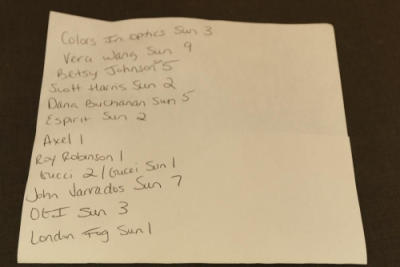 Colors In optics Sun 3
Vera Wang Sun 9
Betsy Johnson 5
Scott Harris Sun 2
Dana Buchanan Sun 5
Esprit Sun 2
Axel 1
Roy Robinson 1
Gucci 2/Gucci Sun 1
John Varvados Sun 7
OGI Sun 3
London Fog Sun 1